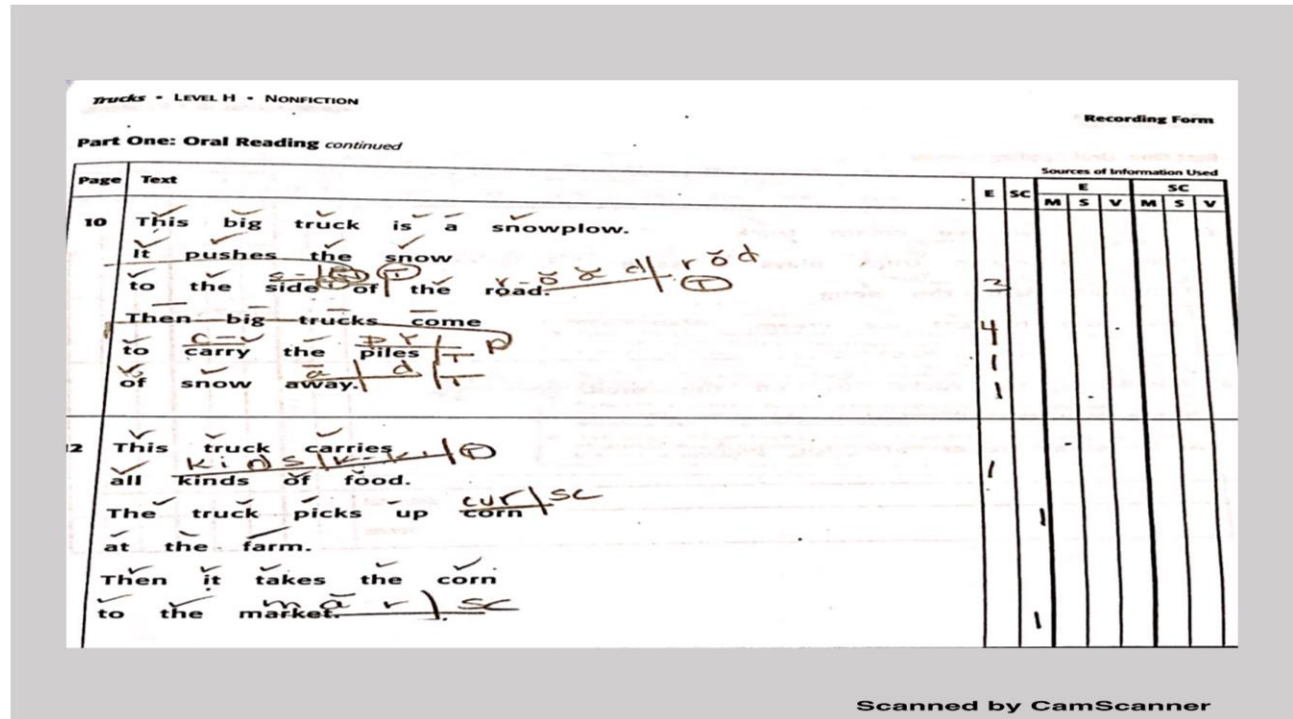 Trucks • LEVEL H • NONFICTION
Recording Form
Part One: Oral Reading continued
Sources of Information Used
Page Text E SC E SC
M S V M S V
10 This big truck is a snowplow.
It pushes the snow
to the side of the road.
Then big trucks come
4
to carry the piles
1
of snow away.
1
12 This truck carries
kinds
all kinds of food.
1
cur | SC
The truck picks up corn
1
at the farm.
Then it takes the corn
SC
to the market.
1
Scanned by CamScanner